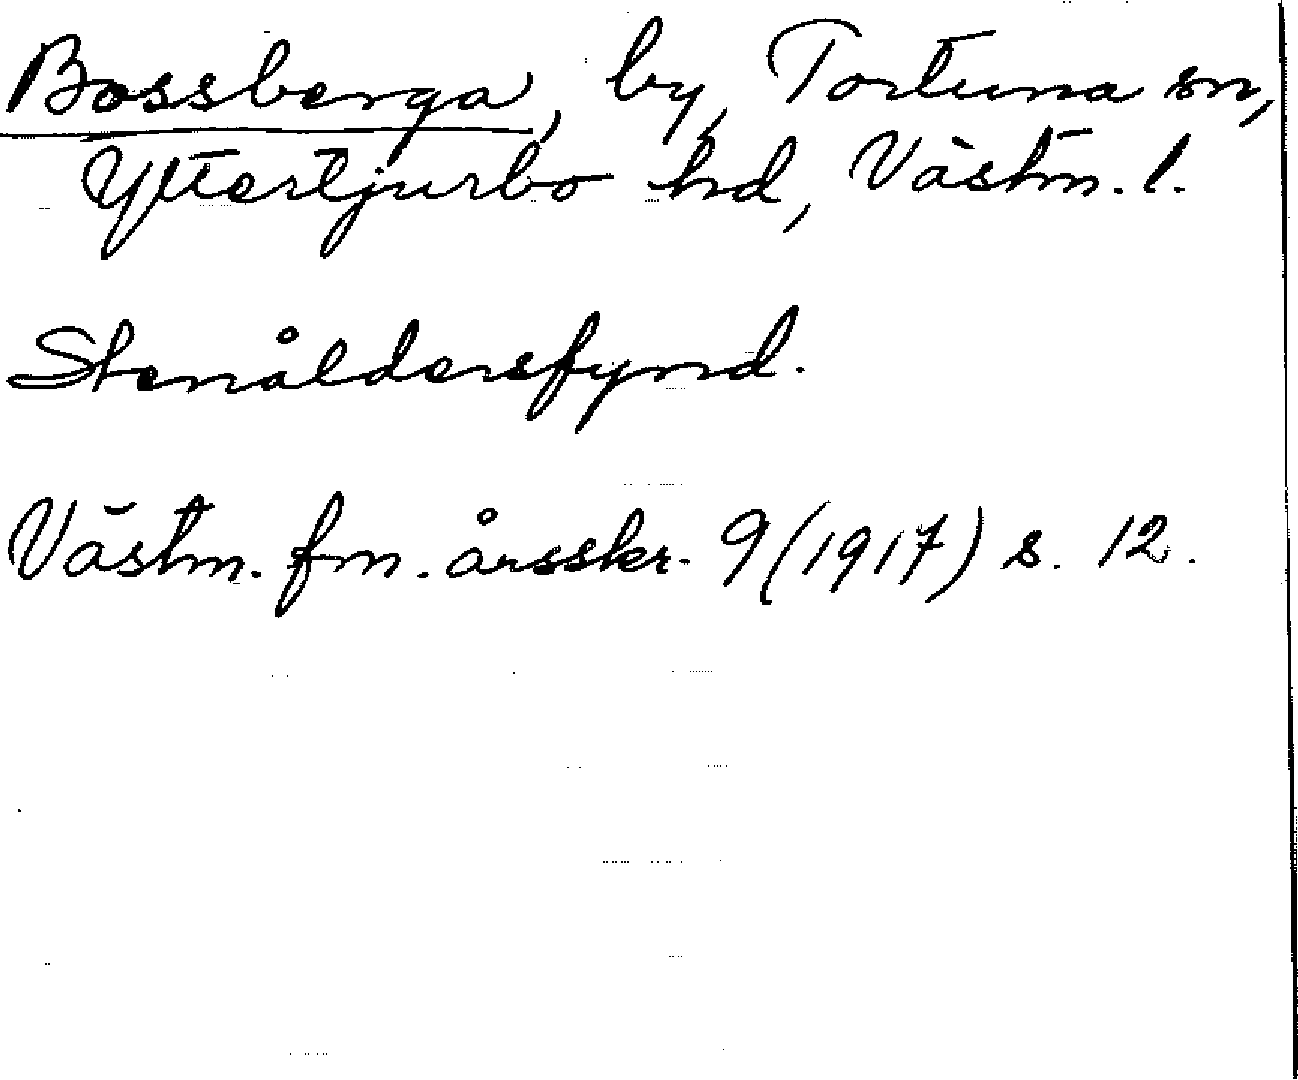 Bossberga, by, Tortuna sn,
Yttertjurbo hd, Västm. l.
Stenåldersfynd.
Västm. fm. årsskr. 9 (1917) s. 12.